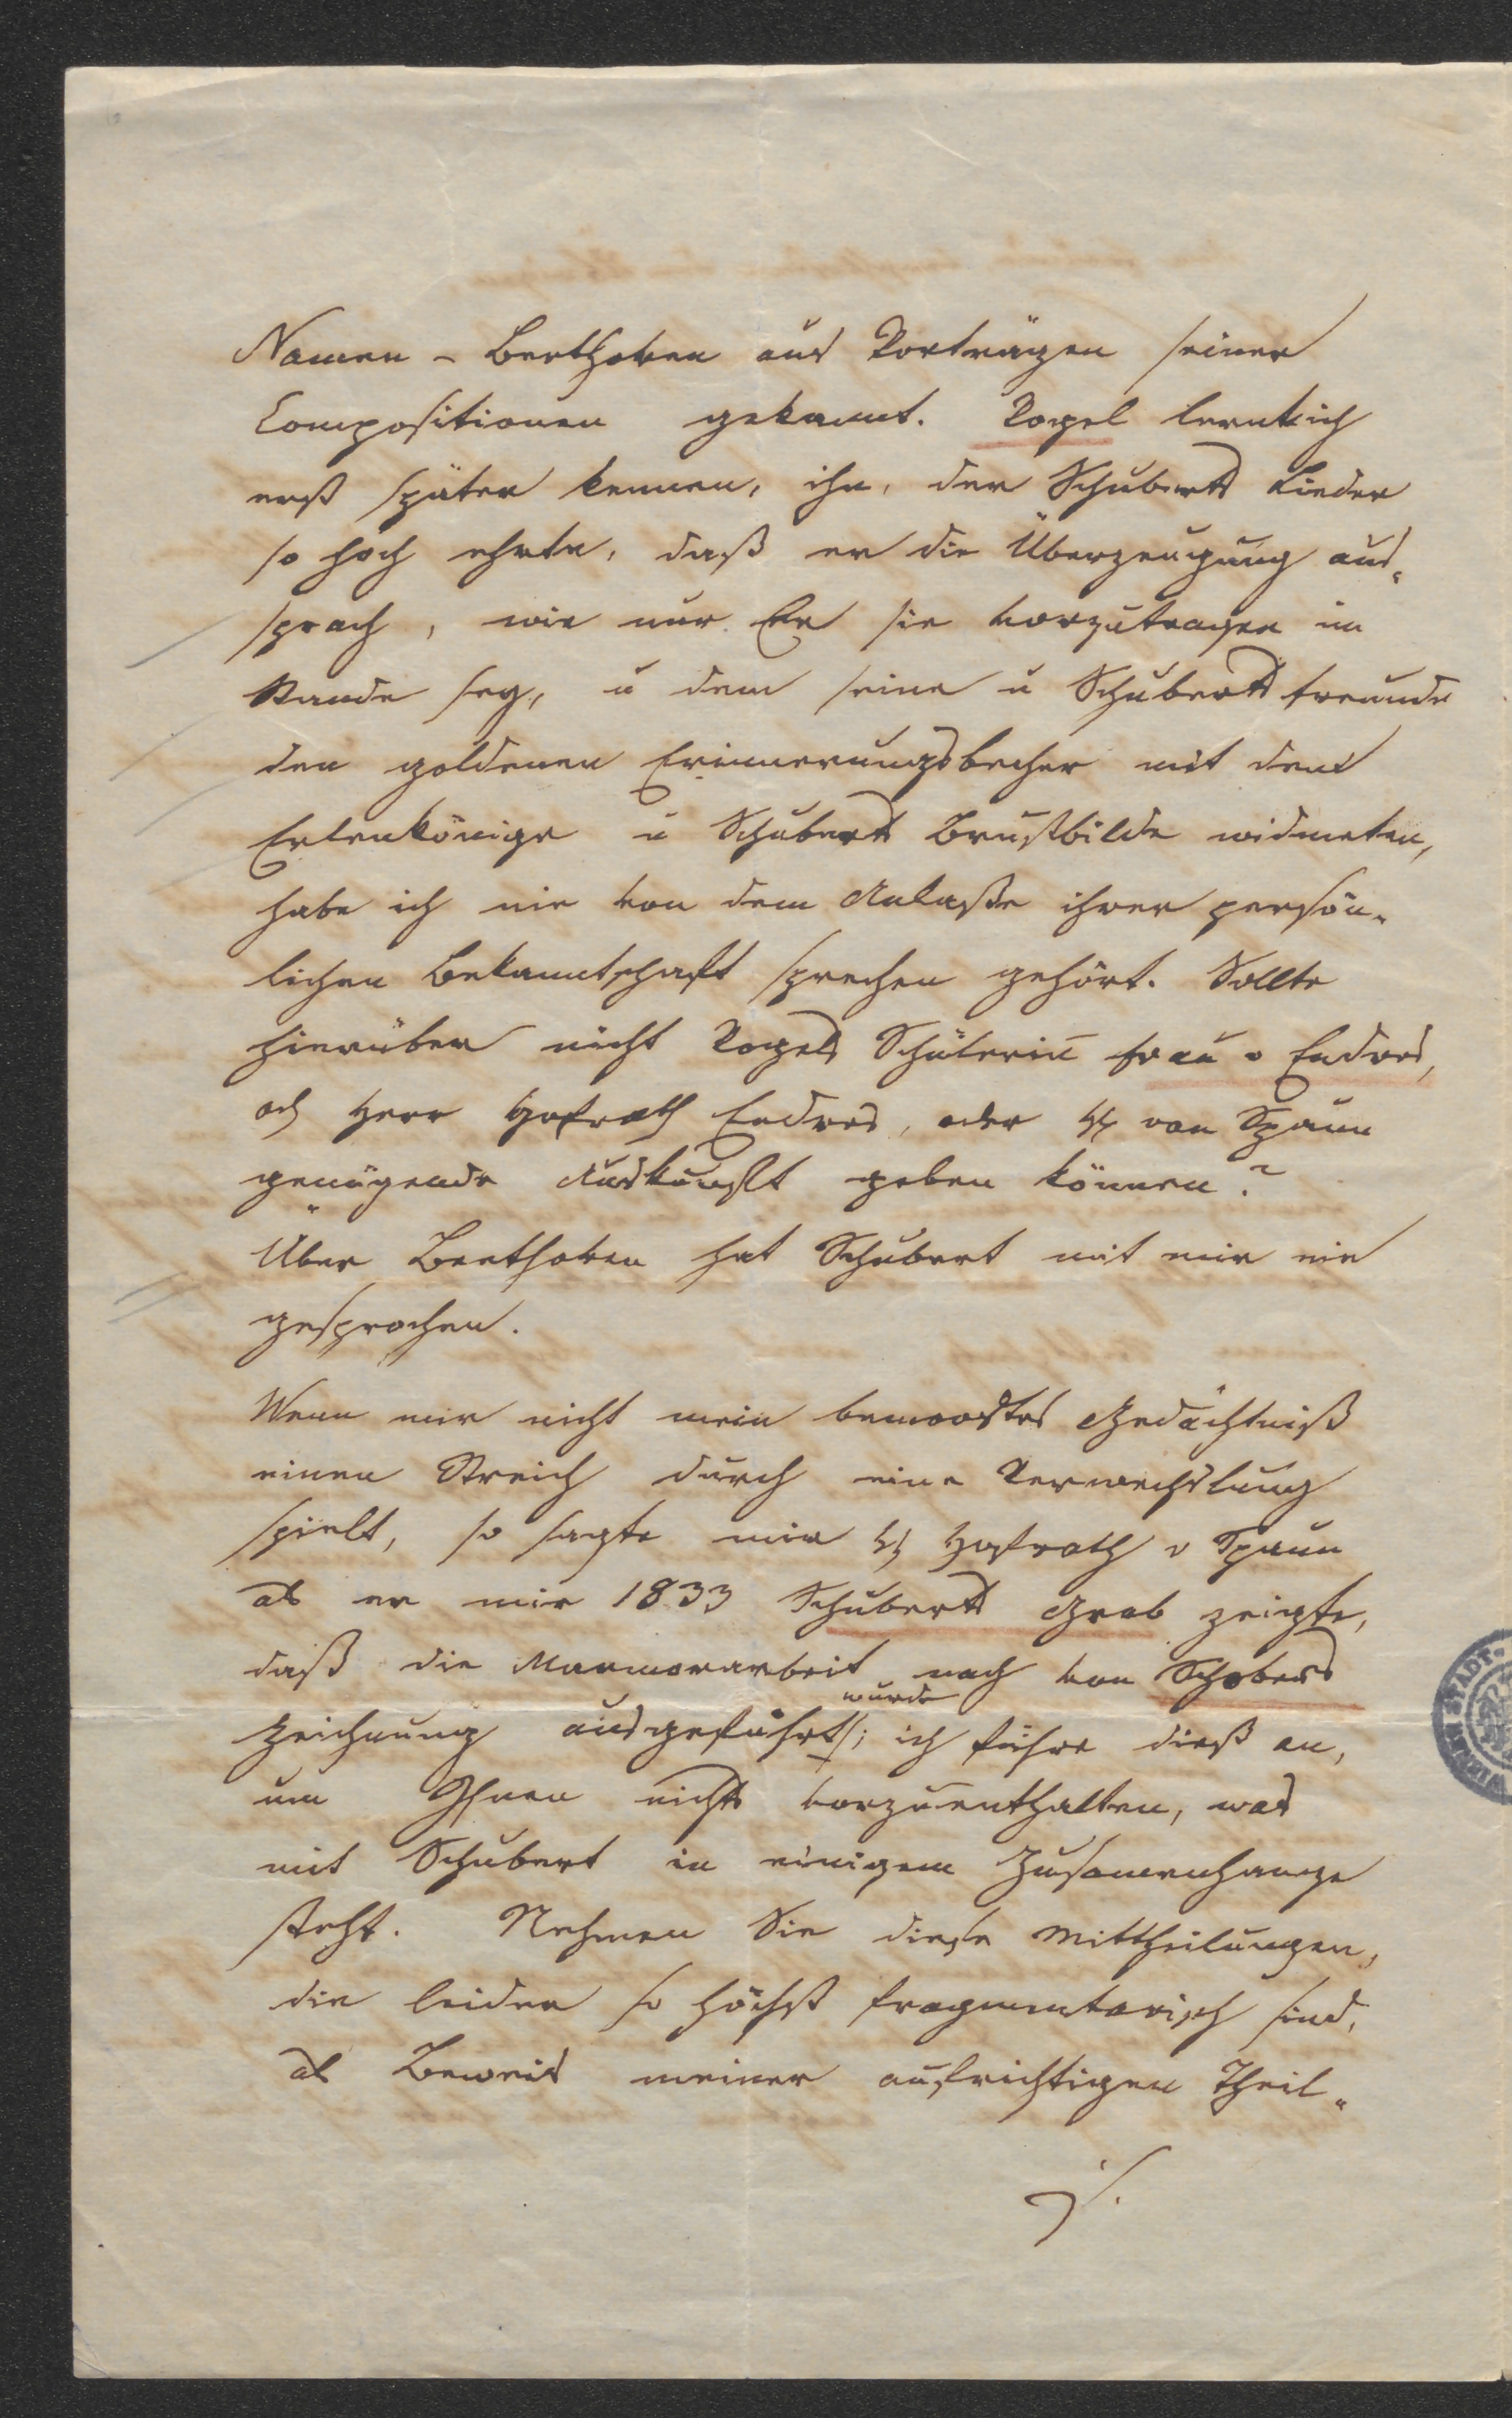 Namen – Beethoven aus Vorträgen seiner
Compositionen gekannt. Vogel lernte ich
erst später kennen, ihn, der Schuberts Lieder
so hoch ehrte, daß er die Überzeugung aus„
sprach, wie nur Er sie vorzutragen im
Stande sey, u dem seine u Schuberts Freunde
den goldenen Erinnerungsbecher mit dem
Erlenkönige u Schuberts Brustbilde widmeten,
habe ich nie von dem Anlaße ihrer persön„
lichen Bekanntschaft sprechen gehört. Sollte
hierüber nicht Vogels Schülerin Frau v Endres,
od Herr Hofrath Endres, oder H von Spaun
genügende Auskunft geben können?
Über Beethoven hat Schubert mit mir nie
gesprochen.
Wenn mir nicht mein bemoostes Gedächtniß
einen Streich durch eine Verwechslung
spielt, so sagte mir H Hofrath v Spaun
als er mir 1833 Schuberts Grab zeigte,
daß die Marmorarbeit nach von Schobers
wurde
Zeichnung ausgeführt; ich führe dieß an,
um Ihnen nichts vorzuenthalten, was
mit Schubert in einigem Zusamenhange
steht. Nehmen Sie diese Mittheilungen,
die leider so höchst fragmentarisch sind,
als Beweis meiner aufrichtigen Theil„
./.
WIENER STADT-